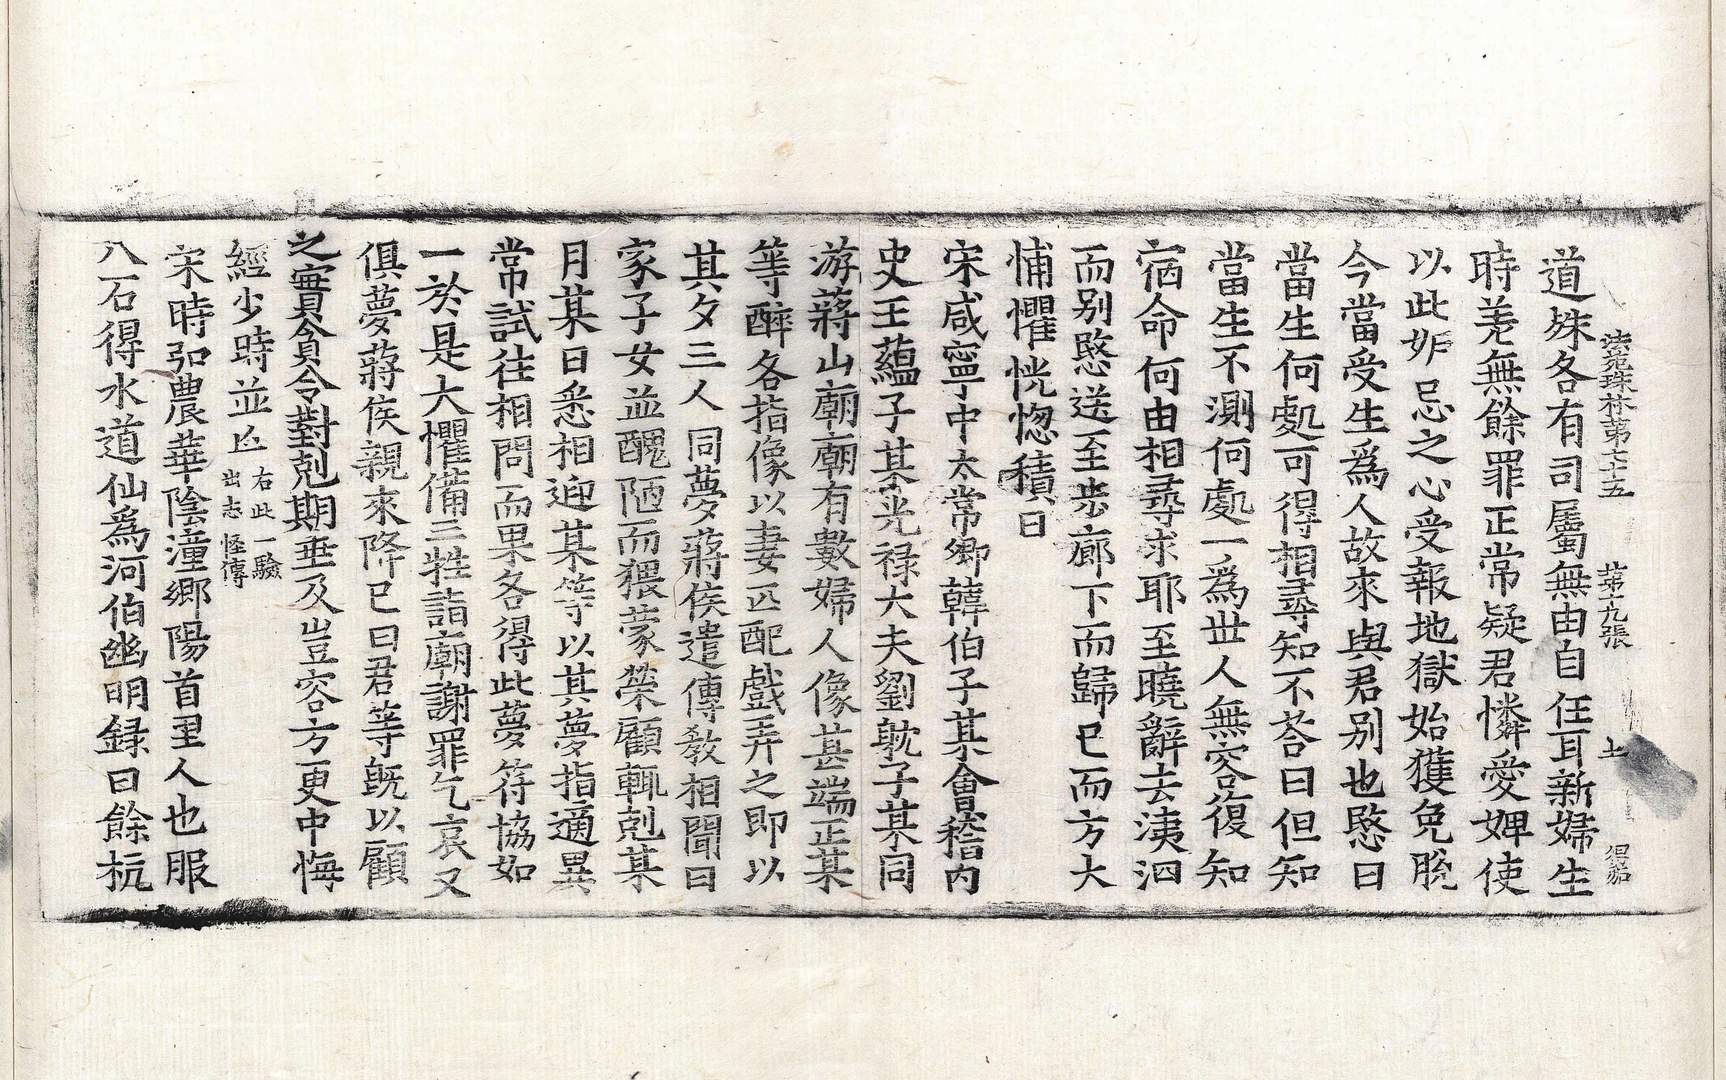 法苑珠林第七十五　第九張　士　徂冶
道殊各有司屬無由自任耳新婦生
時差無餘罪正常疑君憐愛婢使
以此妒忌之心受報地獄始獲免脫
今當受生為人故來與君別也愍曰
當生何處可得相尋知不荅曰但知
當生不測何處一為世人無容復知
宿命何由相尋求耶至曉辭去洟泗
而別愍送至步廊下而歸已而方大
悑懼恍惚積日
宋咸寧中太常卿韓伯子某會稽內
史王蘊子某光祿大夫劉耽子某同
游蔣山廟廟有數婦人像甚端正某
等醉各指像以妻匹配戲弄之即以
其夕三人同夢蔣侯遣傳教相聞曰
家子女並醜陋而猥蒙榮顧輒剋某
月某日悉相迎某等以其夢指適異
常試往相問而果各得此夢符協如
一於是大懼備三牲詣廟謝罪乞哀又
俱夢蔣侯親來降已曰君等旣以顧
之實貪令對剋期垂及豈容方更中悔
經少時並亡右此一驗出志怪傳
宋時弘農華陰潼鄉陽首里人也服
八石得水道仙為河伯幽明録曰餘杭